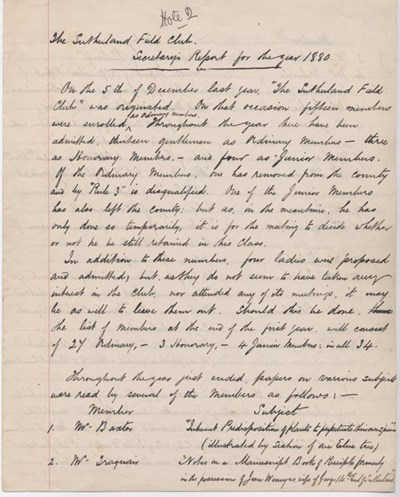 Note 2
The Sutherland Field Club.
Secretary's Report for the year 1880
On the 5th of December last year, "The Sutherland Field
Club" was originated. On that occasion fifteen members
as ordinary members.
were enrolled. Throughout the year there have been
admitted, thirteen gentlemen as Ordinary Members – three
as Honorary Members, – and four as Junior Members.
Of the Ordinary Members, one has removed from the county
and by "Rule 3" is disqualified. One of the Junior Members
has also left the county; but as, in the meantime, he has
only done so temporarily, it is for the meeting to decide whether
or not he be still retained in this Class.
In addition to these numbers, four ladies were proposed
and admitted; but, as they do not seem to have taken any
interest in the Club, nor attended any of its meetings, it may
be as well to leave them out. Should this be done,
the list of members at the end of the first year, will consist
of 27 Ordinary, – 3 Honorary, – 4 Junior Members: in all 34.
Throughout the year just ended, papers on various subjects
were read by several of the Members as follows: –
Member Subject
1. Mr Baxter "Inherent Predisposition of plants to perpetuate their
(illustrated by Section of an Elm tree)
2. Mr Traquair "Notes on a Manuscript Book of Receipts formerly
in the possession of Jean Wemyss wife of George 14th Earl of Sutherland"